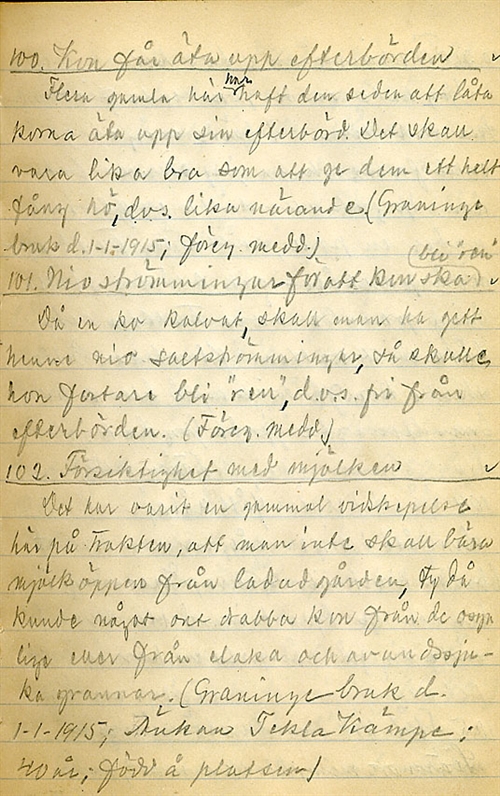 100. Kon får äta upp efterbörden
Flera gamla här har haft den seden att låta
korna äta upp sin efterbörd. Det skall
vara lika bra som att ge dem ett helt
fång hö, d.v.s. lika närande (Graninge
bruk d. 1-1-1915; föreg. medd.)
101. Nio strömmingar för att kon ska (bli "ren")
Då en ko kalvat, skall man ha gett
henne nio saltströmmingar, så skulle
hon fortare bli "ren", d.v.s. fri från
efterbörden. (Föreg. medd.)
102. Försiktighet med mjölken
Det har varit en gammal vidskepelse
här på trakten, att man inte skall bära
mjölk öppen från ladugården, ty då
kunde något ont drabba kon från de osyn
liga eller från elaka och avundsju-
ka grannar. (Graninge bruk d.
1-1-1915; Änkan Tekla Kämpe;
40 år; född å platsen)